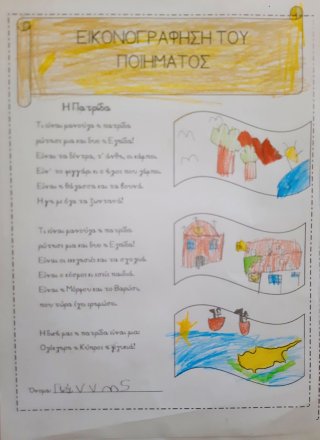 ΕΙΚΟΝΟΓΡΑΦΗΣΗ ΤΟΥ
ΠΟΙΗΜΑΤΟΣ
Η Πατρίδα
Τι είναι μανούλα η πατρίδα
ρώτησε μια και δυο η Ελπίδα!
Είναι τα δέντρα, τ' άνθη, οι κάμποι
Είν' το φεγγάρι κι ο ήλιος που λάμπει
Είναι η θάλασσα και τα βουνά
Η γη με όλα τα ζωντανά!
Τι είναι μανούλα η πατρίδα
ρώτησε μια και δυο η Ελπίδα!
Είναι οι εκκλησιές και τα σχολειά
Είναι ο κόσμος κι εσείς παιδιά.
Είναι η Μόρφου και το Βαρώσι
που τώρα έχει ερημώσει.
Η δική μας η πατρίδα είναι μια:
Ολόκληρη η Κύπρος η γλυκιά!
Όνομα: